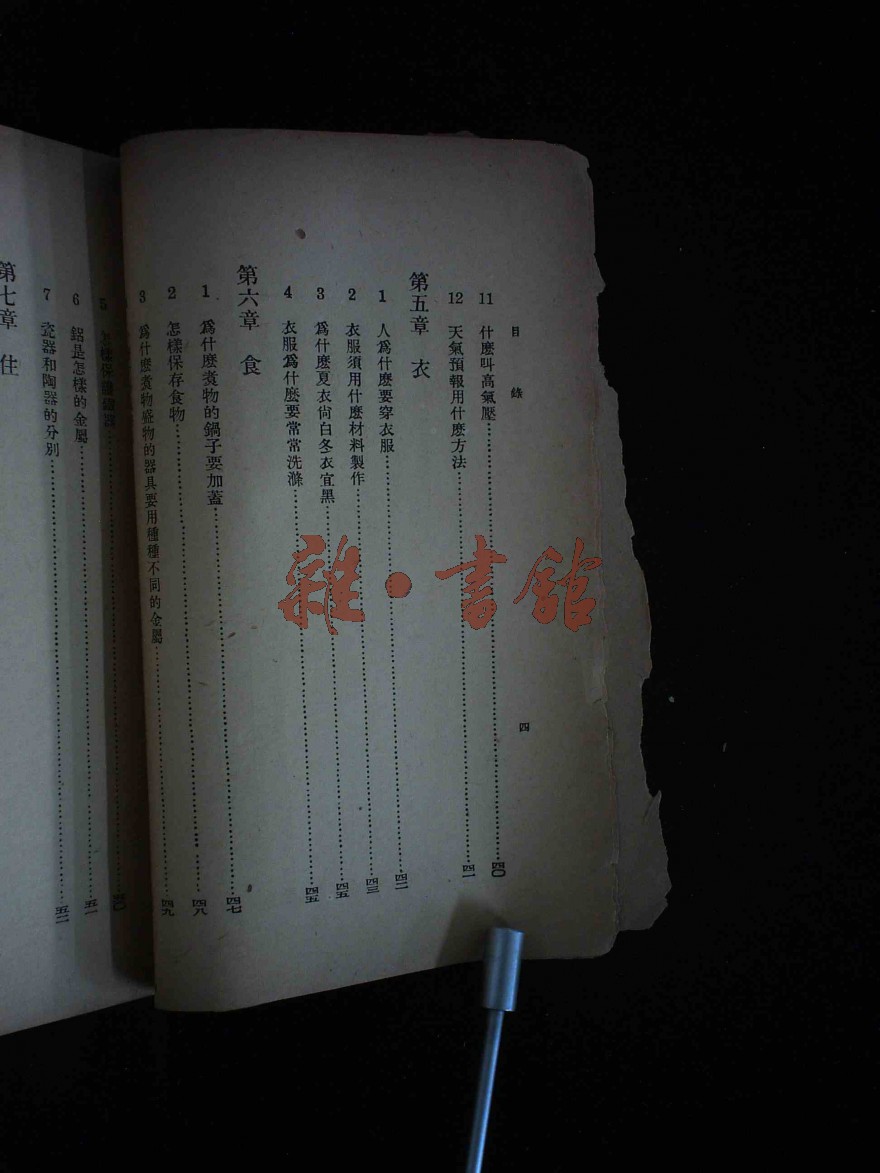 目錄
四
11 什麽叫高氣壓 四〇
12 天氣預報用什麽方法 四一
第五章 衣
1 人爲什麽要穿衣服 四二
2 衣服須用什麽材料製作 四三
3 爲什麽夏衣尙白冬衣宜黑 四五
4 衣服爲什麽要常常洗滌 四五
第六章 食
1 爲什麽煮物的鍋子要加蓋 四七
2 怎樣保存食物 四八
3 爲什麽煮物盛物的器具要用種種不同的金屬 四九
5 怎樣保護
6 鋁是怎樣的金屬 五一
7 瓷器和陶器的分別 五二
第七章 住
雜·書館